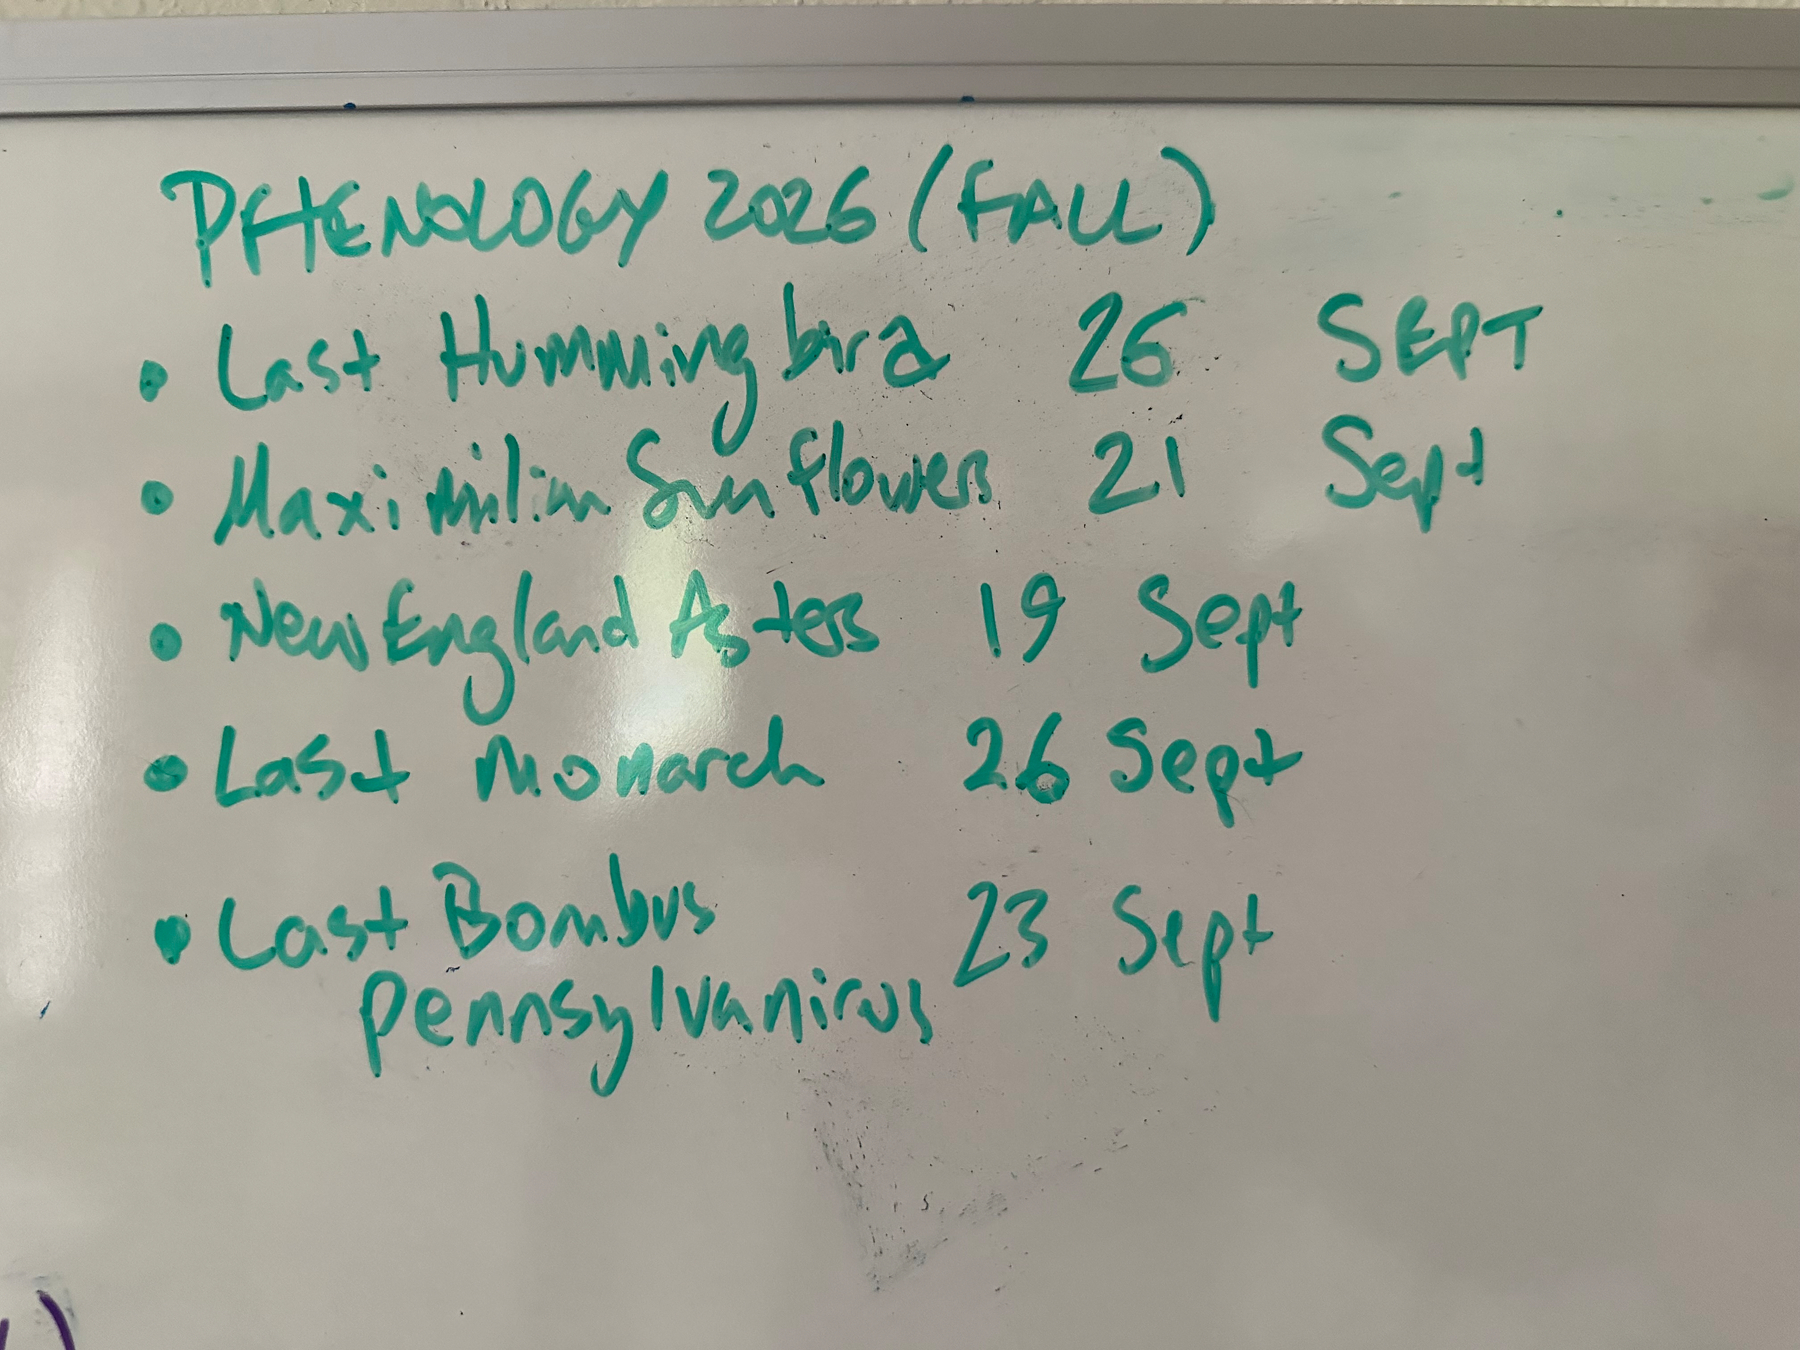 PHENOLOGY 2026 (FALL)
• Last Hummingbird 26 SEPT
• Maximilian Sunflowers 21 Sept
• New England Asters 19 Sept
• Last Monarch 26 Sept
• Last Bombus 23 Sept
pennsylvanicus